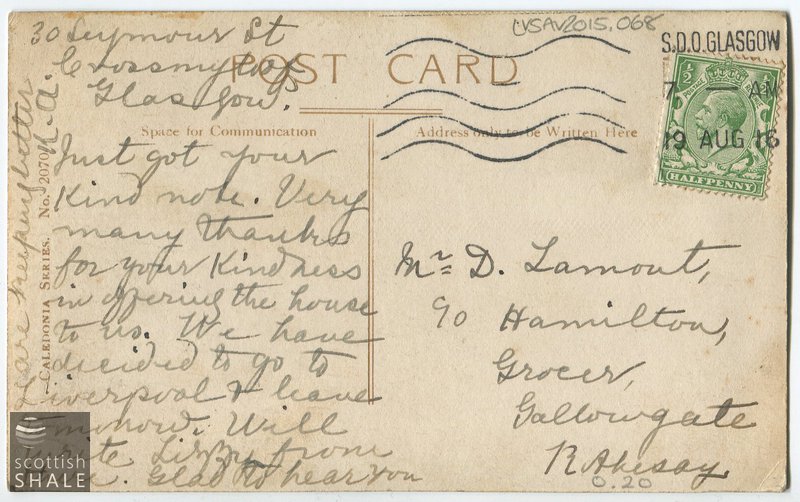 LVSAV2015.068
S.D.O. GLASGOW
7 — AM
19 AUG 16
½
½
HALFPENNY
POST CARD
Space for Communication
Address only to be Written Here
CALEDONIA SERIES. No. 2070
30 Seymour St
Crossmyloof
Glasgow.
Just got your
Kind note. Very
many thanks
for your Kindness
in offering the house
to us. We have
decided to go to
Liverpool & leave
tomorrow. Will
write Lizzy from
Glad to hear you
are keeping better
K.A.
Mr D. Lamont,
90 Hamilton,
Grocer,
Gallowgate
Rothesay
0.20
scottish
SHALE